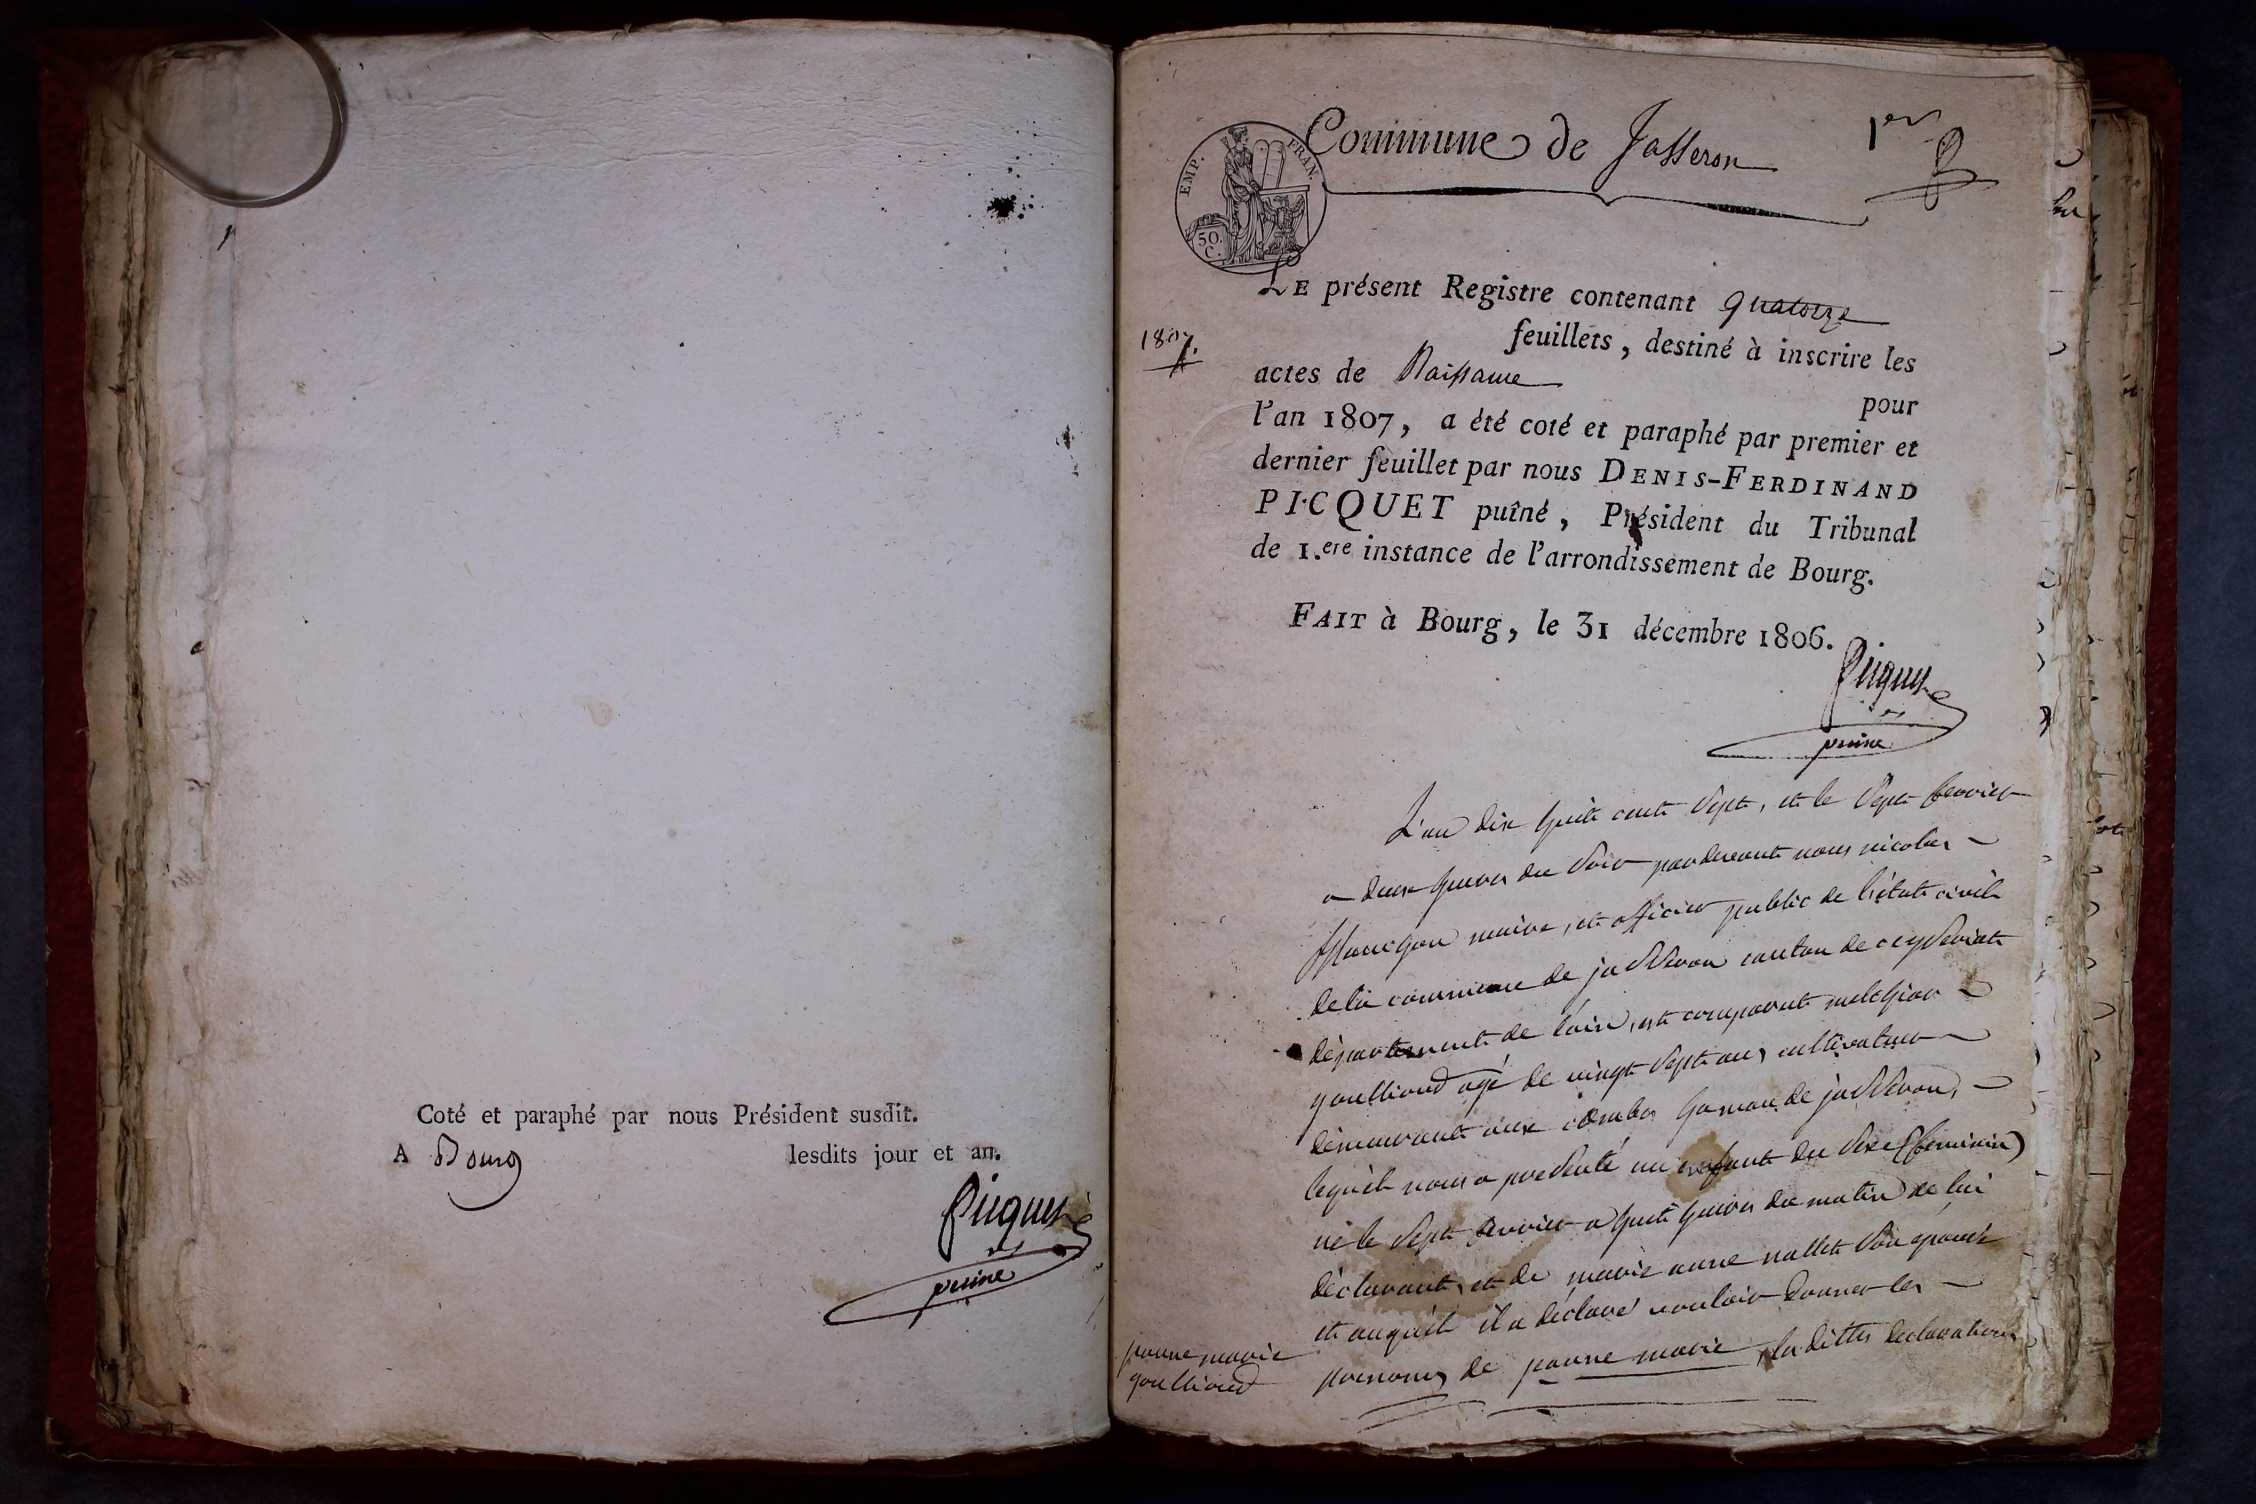 Coté et paraphé par nous Président susdit.
A Bourg lesdits jour et an.
Picquet
puiné
Commune de Jasseron
1er
EMP. FRAN.
50.
C.
LE présent Registre contenant quatorze
feuillets, destiné à inscrire les
1807.
actes de Naissance
pour
l'an 1807, a été coté et paraphé par premier et
dernier feuillet par nous DENIS-FERDINAND
PICQUET puîné, Président du Tribunal
de 1.ere instance de l'arrondissement de Bourg.
FAIT à Bourg, le 31 décembre 1806.
Picquet
puiné
L'an dix huit cent sept, et le sept fevrier
a deux heures du soir pardevant nous nicolas
maire, et officier public de l'état civil
de la commune de jasseron canton de ceyseriat
département de l'ain, est comparut melchior
goullioud agé de vingt sept ans, cultivateur
demeurant aux combes hamau de jasseron,
lequel nous a presenté un enfant du sexe (feminin)
né le sept fevrier a huit heures du matin de lui
déclarant, et de marie anne nallet son epouse
et auquel il a déclaré vouloir donner les
prenoms de janne marie, les dittes declarations
janne marie
goullioud